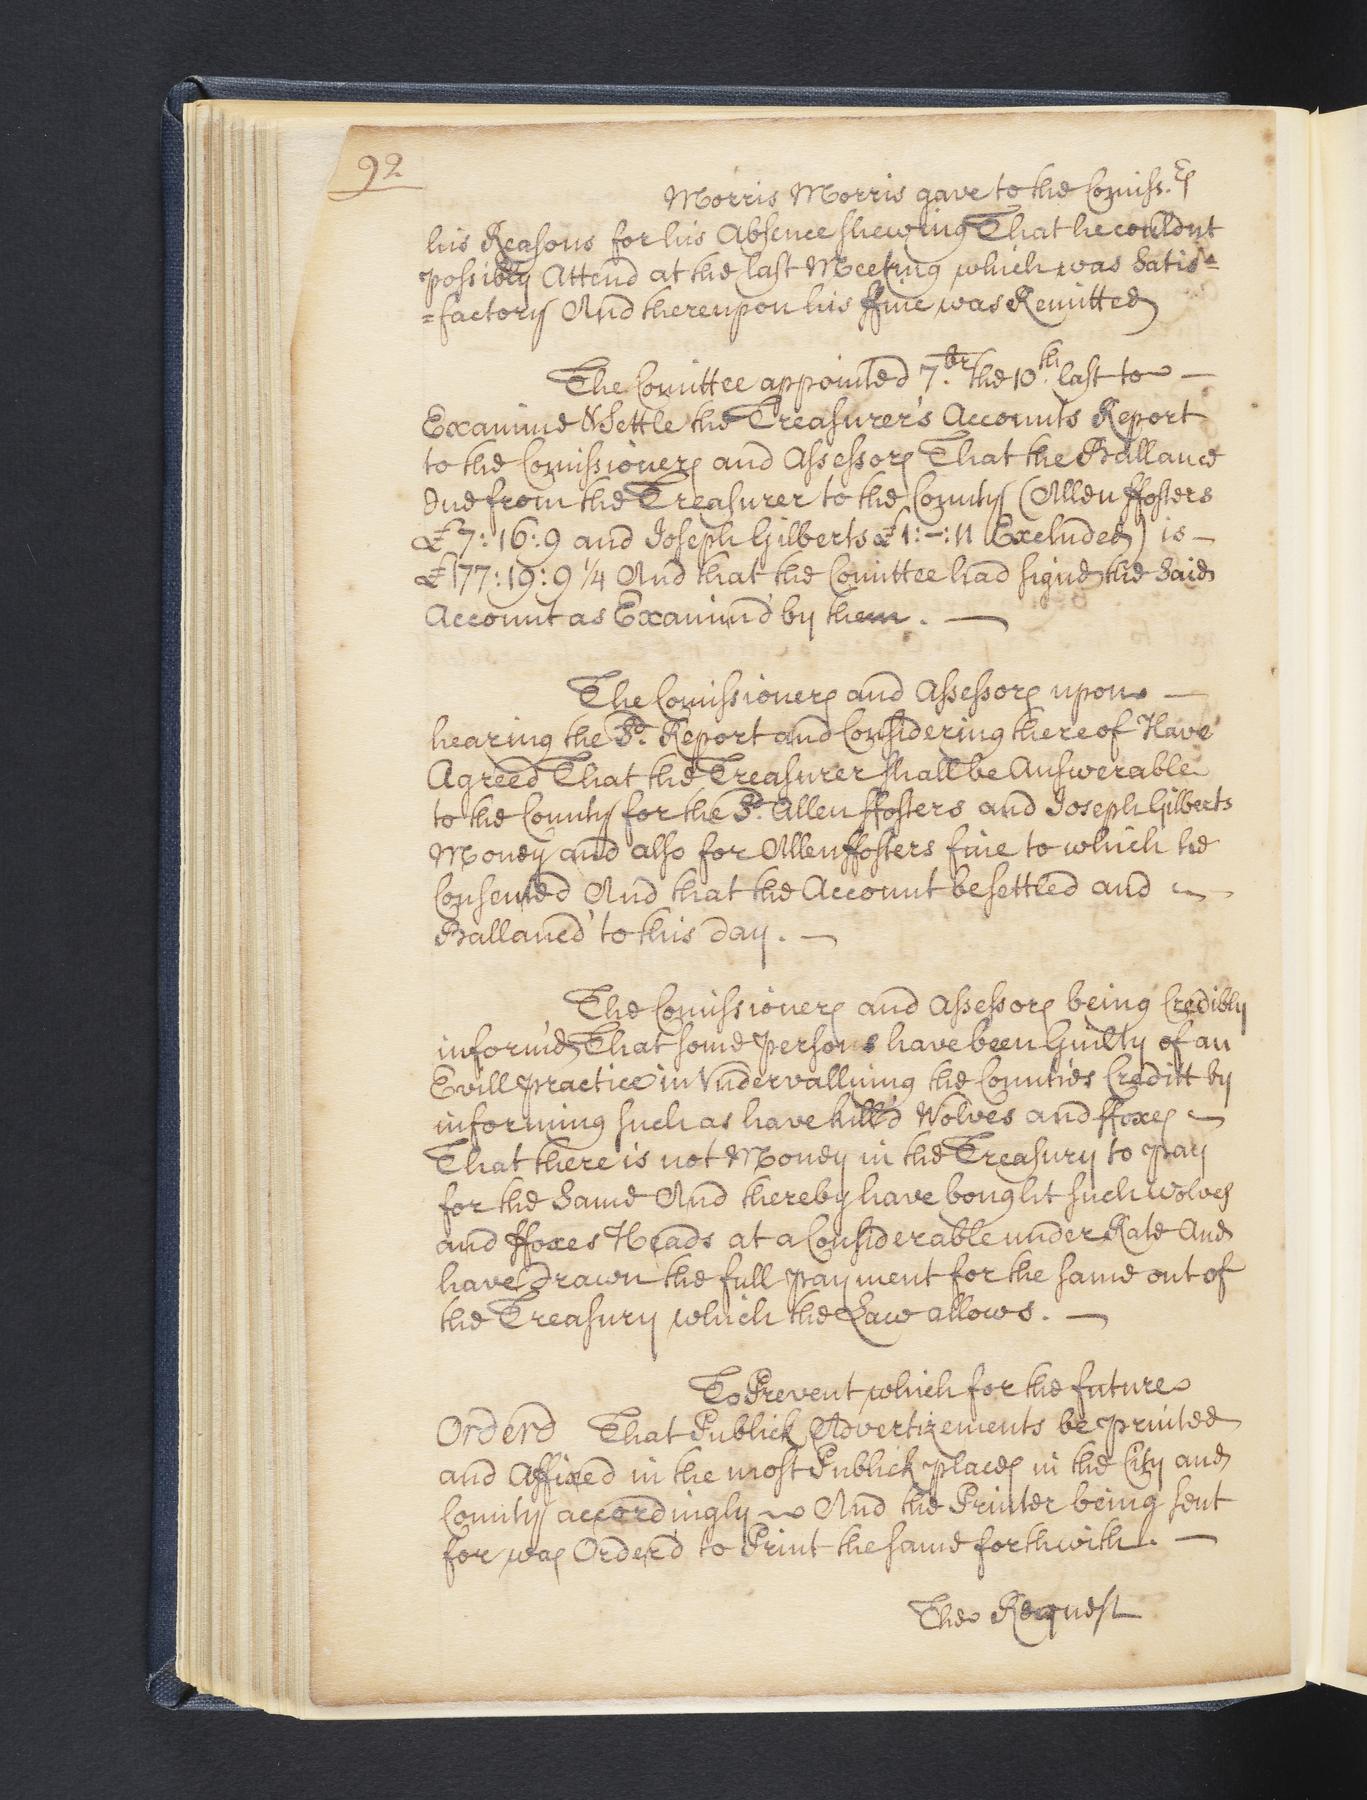 92
Morris Morris gave to the Comiss.rs
his Reasons for his Absence shewing That he couldnt
possibly Attend at the last Meeting which was Satis=
=factory And thereupon his ffine was Remitted
The Comittee appointed 7.br the 10.th last to —
Examine & Settle the Treasurer's Accounts Report
to the Comissioners and Assessors That the Ballance
due from the Treasurer to the County (Allen ffosters
£7:16:9 and Joseph Gilberts £1:–:11 Excluded) is —
£177:19:9 1/4 And that the Comittee had signed the Said
Account as Examin'd by them. —
The Comissioners and Assessors upon —
hearing the Sd. Report and Considering thereof Have
Agreed That the Treasurer shall be Answerable
to the County for the Sd. Allen ffosters and Joseph Gilberts
Money and also for Allen ffosters fine to which he
Consented And that the Account be settled and —
Ballanc'd to this day. —
The Comissioners and Assessors being Credibly
inform'd That some persons have been Guilty of an
Evill practice in Undervalluing the Counties Creditt by
informing such as have kill'd Wolves and ffoxes —
That there is not Money in the Treasury to pay
for the Same And thereby have bought such wolves
and ffoxes Heads at a Considerable under Rate And
have Drawn the full payment for the same out of
the Treasury which the Law allows. —
To Prevent which for the future
Orderd That Publick Advertizements be printed
and Affixed in the most Publick places in the City and
County accordingly And the Printer being sent
for was Order'd to Print the same forthwith. —
The Request